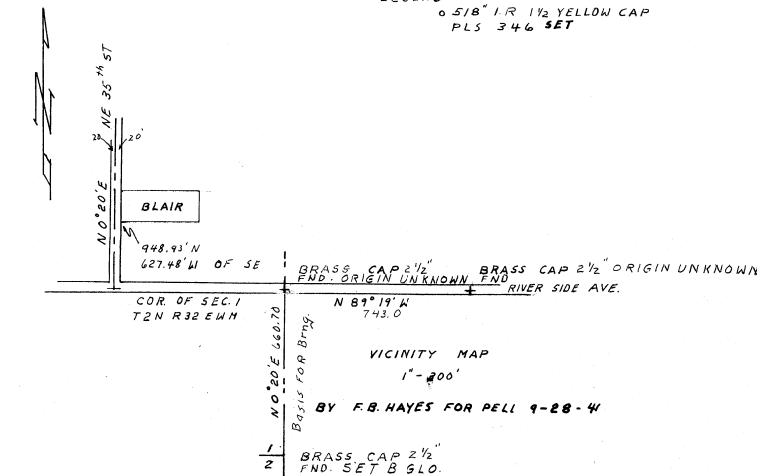 o 5/8" I.R 1 1/2 YELLOW CAP
PLS 346 SET
NE 35th ST
20' 20'
N 0°20'E
BLAIR
948.93' N
627.48' W OF SE
BRASS CAP 2 1/2"
FND. ORIGIN UNKNOWN
BRASS CAP 2 1/2" ORIGIN UNKNOWN
FND
RIVER SIDE AVE.
COR. OF SEC. 1
T2N R32 EWM
N 89° 19' W
743.0
N 0°20'E 660.70
Basis FOR Brng.
VICINITY MAP
BY F.B. HAYES FOR PELL 9-28-41
1
2
BRASS CAP 2 1/2"
FND. SET B GLO.